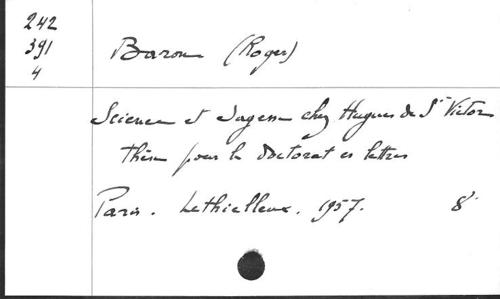 242
391
4
Baron (Roger)
Science et Sagesse chez Hugues de St Victor
Thèse pour le doctorat es lettres
Paris. Lethielleux. 1957. 8°